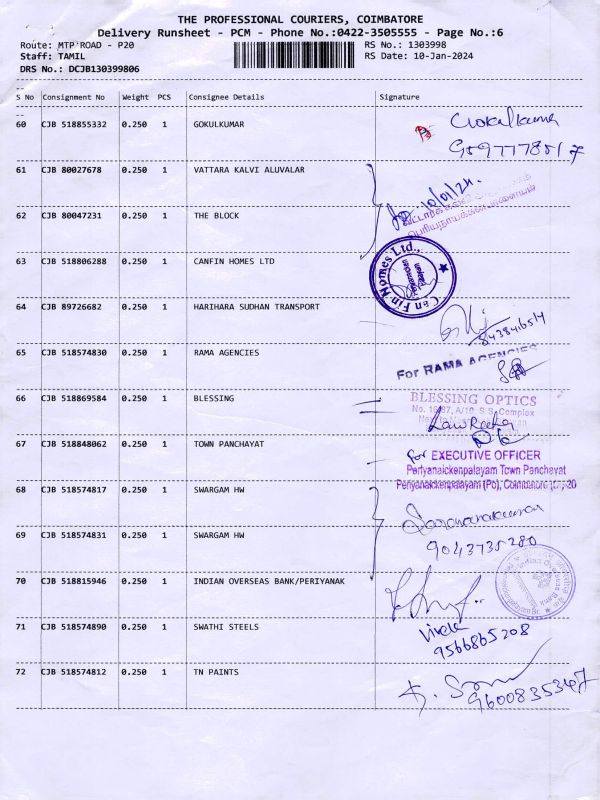 THE PROFESSIONAL COURIERS, COIMBATORE
Delivery Runsheet - PCM - Phone No.:0422-3505555 - Page No.:6
Route: MTP ROAD - P20 RS No.: 1303998
Staff: TAMIL RS Date: 10-Jan-2024
DRS No.: DCJB130399806
--
S No Consignment No Weight PCS Consignee Details Signature
--
60 CJB 518855332 0.250 1 GOKULKUMAR Gokulkumar
9597778517
61 CJB 80027678 0.250 1 VATTARA KALVI ALUVALAR
10/01/24.
62 CJB 80047231 0.250 1 THE BLOCK
63 CJB 518806288 0.250 1 CANFIN HOMES LTD
Can Fin Homes Ltd.,
64 CJB 89726682 0.250 1 HARIHARA SUDHAN TRANSPORT
65 CJB 518574830 0.250 1 RAMA AGENCIES
For RAMA AGENCIES
66 CJB 518869584 0.250 1 BLESSING
BLESSING OPTICS
S.S. Complex
67 CJB 518848062 0.250 1 TOWN PANCHAYAT
for EXECUTIVE OFFICER
Periyanaickenpalayam Town Panchayat
Periyanaickenpalayam (Po), Coimbatore
68 CJB 518574817 0.250 1 SWARGAM HW
69 CJB 518574831 0.250 1 SWARGAM HW
9043735280
70 CJB 518815946 0.250 1 INDIAN OVERSEAS BANK/PERIYANAK
Indian Overseas Bank
71 CJB 518574890 0.250 1 SWATHI STEELS
9566865208
72 CJB 518574812 0.250 1 TN PAINTS
9600835347